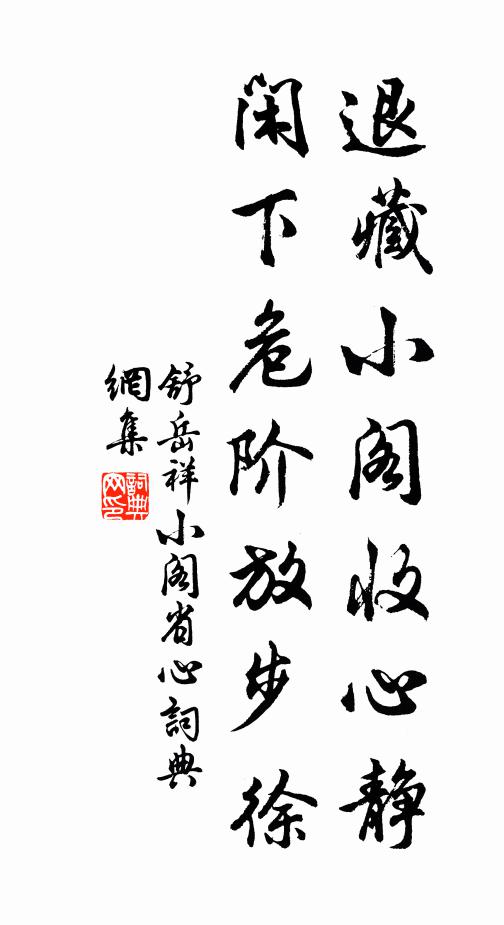 退藏小阁收心静
闲下危阶放步徐
舒岳祥小阁省心詞典
網集
詞典网印